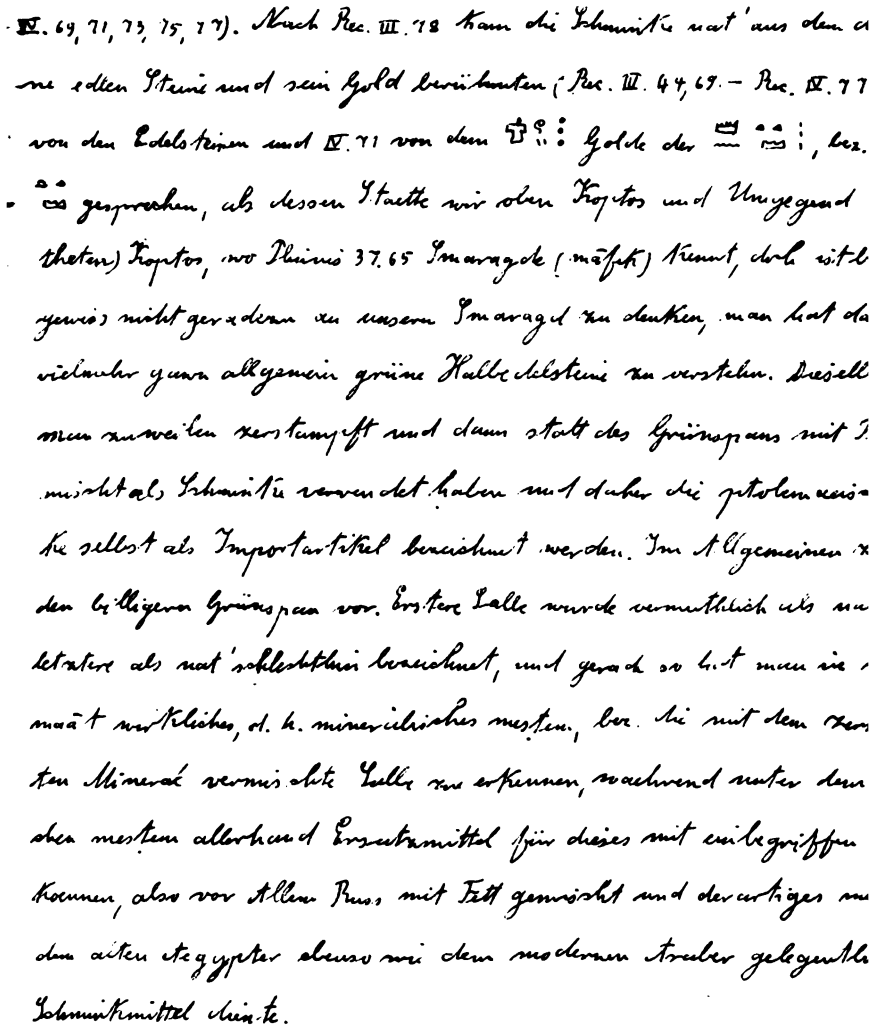 IV. 69, 71, 73, 75, 77). Nach Rec. III. 78 kam die Schminke nat' aus dem
ne edlen Steine und sein Gold berühmten (Rec. III. 44, 69. – Rec. IV. 77
von den Edelsteinen und IV. 71 von dem Golde der , bez.
gesprochen, als dessen Staette wir oben Koptos und Umgegend
theten) Koptos, wo Plinius 37.65 Smaragde (māfek) kennt, doch ist
gewiss nicht geradezu an unsern Smaragd zu denken, man hat
vielmehr ganz allgemein grüne Halbedelsteine zu verstehn. Diesel
man zuweilen zerstampft und dann statt des Grünspans mit
mischt als Schminke verwendet haben und daher die ptolemaeis
ke selbst als Importartikel bezeichnet werden. Im Allgemeinen
den billigern Grünspan vor. Erstere Salbe wurde vermuthlich als
letztere als nat' schlechthin bezeichnet, und gerade so hat man in
maāt wirkliches, d. h. mineralisches mestem, bez. die mit dem zers
ten Mineral vermischte Salbe zu erkennen, waehrend unter dem
chen mestem allerhand Ersatzmittel für dieses mit einbegriffen
koennen, also vor Allem Russ mit Fett gemischt und derartiges
dem alten Aegypter ebenso wie dem modernen Araber gelegentl
Schminkmittel diente.